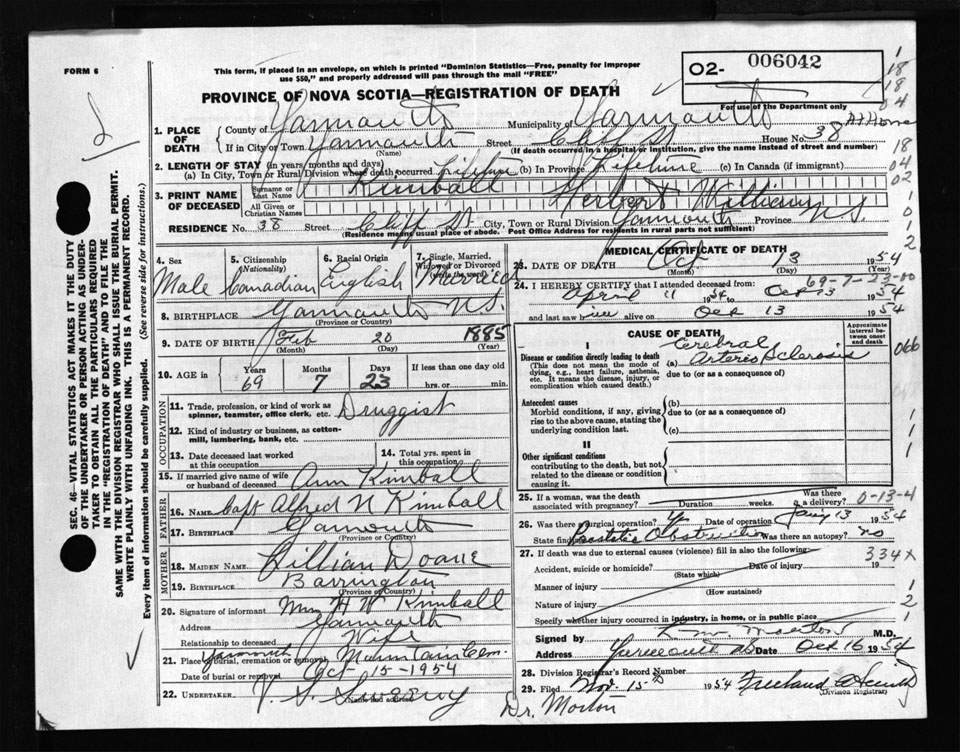 FORM 6
This form, if placed in an envelope, on which is printed "Dominion Statistics—Free, penalty for improper
use $50," and properly addressed will pass through the mail "FREE"
O2- 006042
For use of the Department only
PROVINCE OF NOVA SCOTIA—REGISTRATION OF DEATH
1. PLACE OF DEATH
County of Yarmouth Municipality of Yarmouth
If in City or Town Yarmouth Street Cliff St House No. 38 At Home
(Name) (If death occurred in a hospital or institution, give the name instead of street and number)
2. LENGTH OF STAY (in years, months and days)
(a) In City, Town or Rural Division where death occurred Lifetime (b) In Province Lifetime (c) In Canada (if immigrant)
3. PRINT NAME OF DECEASED
Surname or Last Name Kimball
All Given or Christian Names Herbert William
RESIDENCE No. 38 Street Cliff St City, Town or Rural Division Yarmouth Province N.S.
(Residence means usual place of abode. Post Office Address for residents in rural parts not sufficient)
4. Sex Male
5. Citizenship (Nationality) Canadian
6. Racial Origin English
7. Single, Married, Widowed or Divorced (write the word) Married
8. BIRTHPLACE Yarmouth N.S.
(Province or Country)
9. DATE OF BIRTH Feb 20 1885
(Month) (Day) (Year)
10. AGE in Years 69 Months 7 Days 23 If less than one day old
hrs. or min.
OCCUPATION
11. Trade, profession, or kind of work as spinner, teamster, office clerk, etc. Druggist
12. Kind of industry or business, as cotton-mill, lumbering, bank, etc.
13. Date deceased last worked at this occupation
14. Total yrs. spent in this occupation
15. If married give name of wife or husband of deceased Ann Kimball
FATHER
16. NAME Capt Alfred N Kimball
17. BIRTHPLACE Yarmouth
(Province or Country)
MOTHER
18. MAIDEN NAME Lillian Doane
19. BIRTHPLACE Barrington
(Province or Country)
20. Signature of informant Mrs H W Kimball
Address Yarmouth
Relationship to deceased Wife
21. Place of burial, cremation or removal Yarmouth Mountain Cem.
Date of burial or removal Oct 15-1954
22. UNDERTAKER V. S. Sweeny
(Name and address)
MEDICAL CERTIFICATE OF DEATH
23. DATE OF DEATH Oct 13 1954
(Month) (Day) (Year)
69-7-23-00
24. I HEREBY CERTIFY that I attended deceased from:
April 11 1954 to Oct 13 1954
and last saw h alive on Oct 13 1954
CAUSE OF DEATH
Approximate interval between onset and death
I
Disease or condition directly leading to death
(This does not mean the mode of dying, e.g., heart failure, asthenia, etc. It means the disease, injury, or complication which caused death.)
(a) Cerebral Arterio Sclerosis
due to (or as a consequence of)
Antecedent causes
Morbid conditions, if any, giving rise to the above cause, stating the underlying condition last.
(b)
due to (or as a consequence of)
(c)
II
Other significant conditions
contributing to the death, but not related to the disease or condition causing it.
25. If a woman, was the death associated with pregnancy? Duration weeks. Was there a delivery?
0-13-4
26. Was there surgical operation? Date of operation Jany 13 1954
State findings Prostatic Obstruction Was there an autopsy? no
27. If death was due to external causes (violence) fill in also the following:
334X
Accident, suicide or homicide? Date of injury 19
(State which)
Manner of injury
(How sustained)
Nature of injury
Specify whether injury occurred in industry, in home, or in public place
Signed by M.D.
Address Yarmouth NS Date Oct 16 1954
28. Division Registrar's Record Number
29. Filed Nov. 15th 1954
(Division Registrar)
Dr. Morton
1
18
18
04
18
04
02
0
1
2
066
1
1
1
1
2
1
SEC. 46—VITAL STATISTICS ACT MAKES IT THE DUTY
OF THE UNDERTAKER OR PERSON ACTING AS UNDER-
TAKER TO OBTAIN ALL THE PARTICULARS REQUIRED
IN THE "REGISTRATION OF DEATH" AND TO FILE THE
SAME WITH THE DIVISION REGISTRAR WHO SHALL ISSUE THE BURIAL PERMIT.
WRITE PLAINLY WITH UNFADING INK. THIS IS A PERMANENT RECORD.
Every item of information should be carefully supplied. (See reverse side for instructions.)